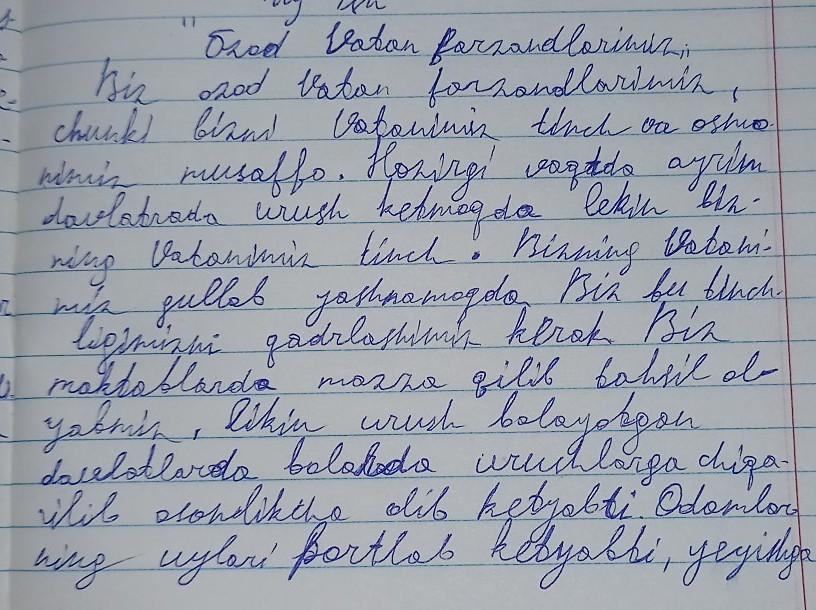 "Ozod Vatan farzandlarimiz"
Biz ozod Vatan farzandlarimiz,
chunki bizni Vatanimiz tinch va osmo-
nimiz musaffo. Hozirgi vaqtda ayrim
davlatrada urush ketmoqda lekin biz-
ning Vatanimiz tinch. Bizning Vatani-
miz gullab yashnamoqda Biz bu tinch-
ligimizni qadrlashimiz kerak Biz
maktablarda mazza qilib tahsil ol-
yabmiz, likin urush bolayotgan
davlatlarda urushlarga chiqa-
rilib olib ketyabti. Odamlar
ning uylari portlab ketyabti, yeyishga